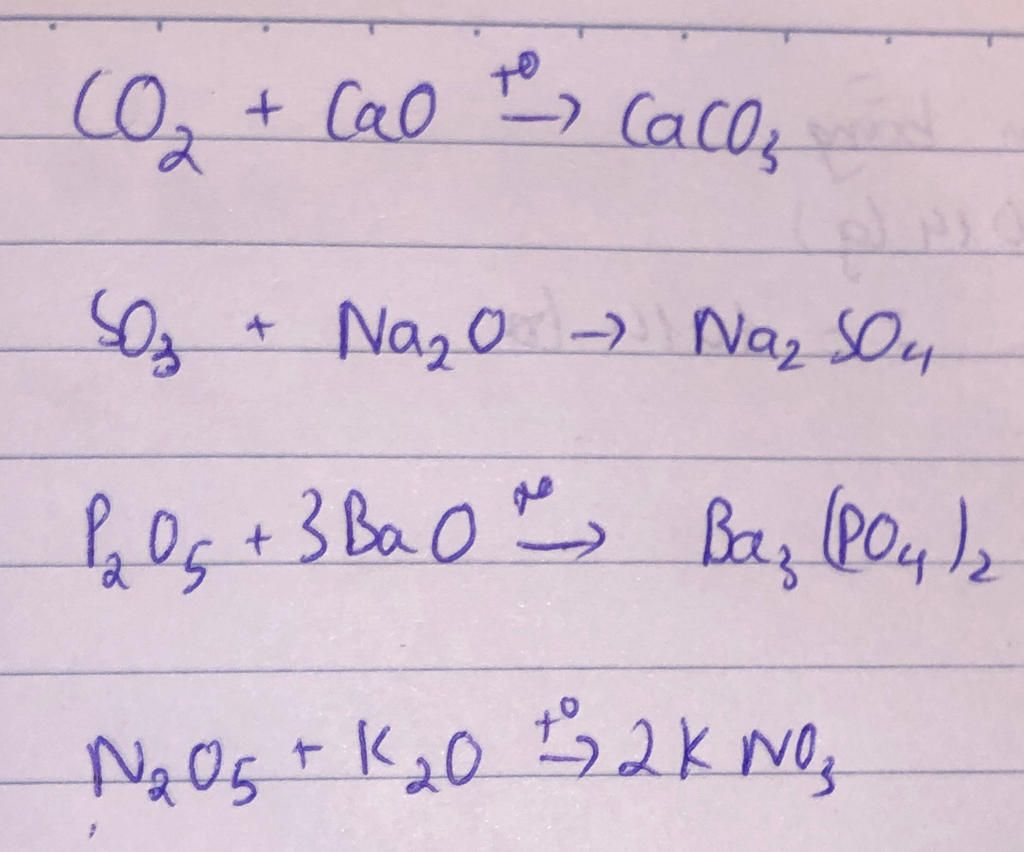 CO₂ + CaO t⁰→ CaCO₃
SO₃ + Na₂O → Na₂SO₄
P₂O₅ + 3BaO t⁰→ Ba₃(PO₄)₂
N₂O₅ + K₂O t⁰→ 2KNO₃